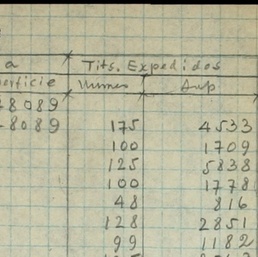 a Tits. Expedidos
erficie Numes Sup
48089
48089 175 4533
100 1709
125 5838
100 1778
48 816
128 2851
99 1182